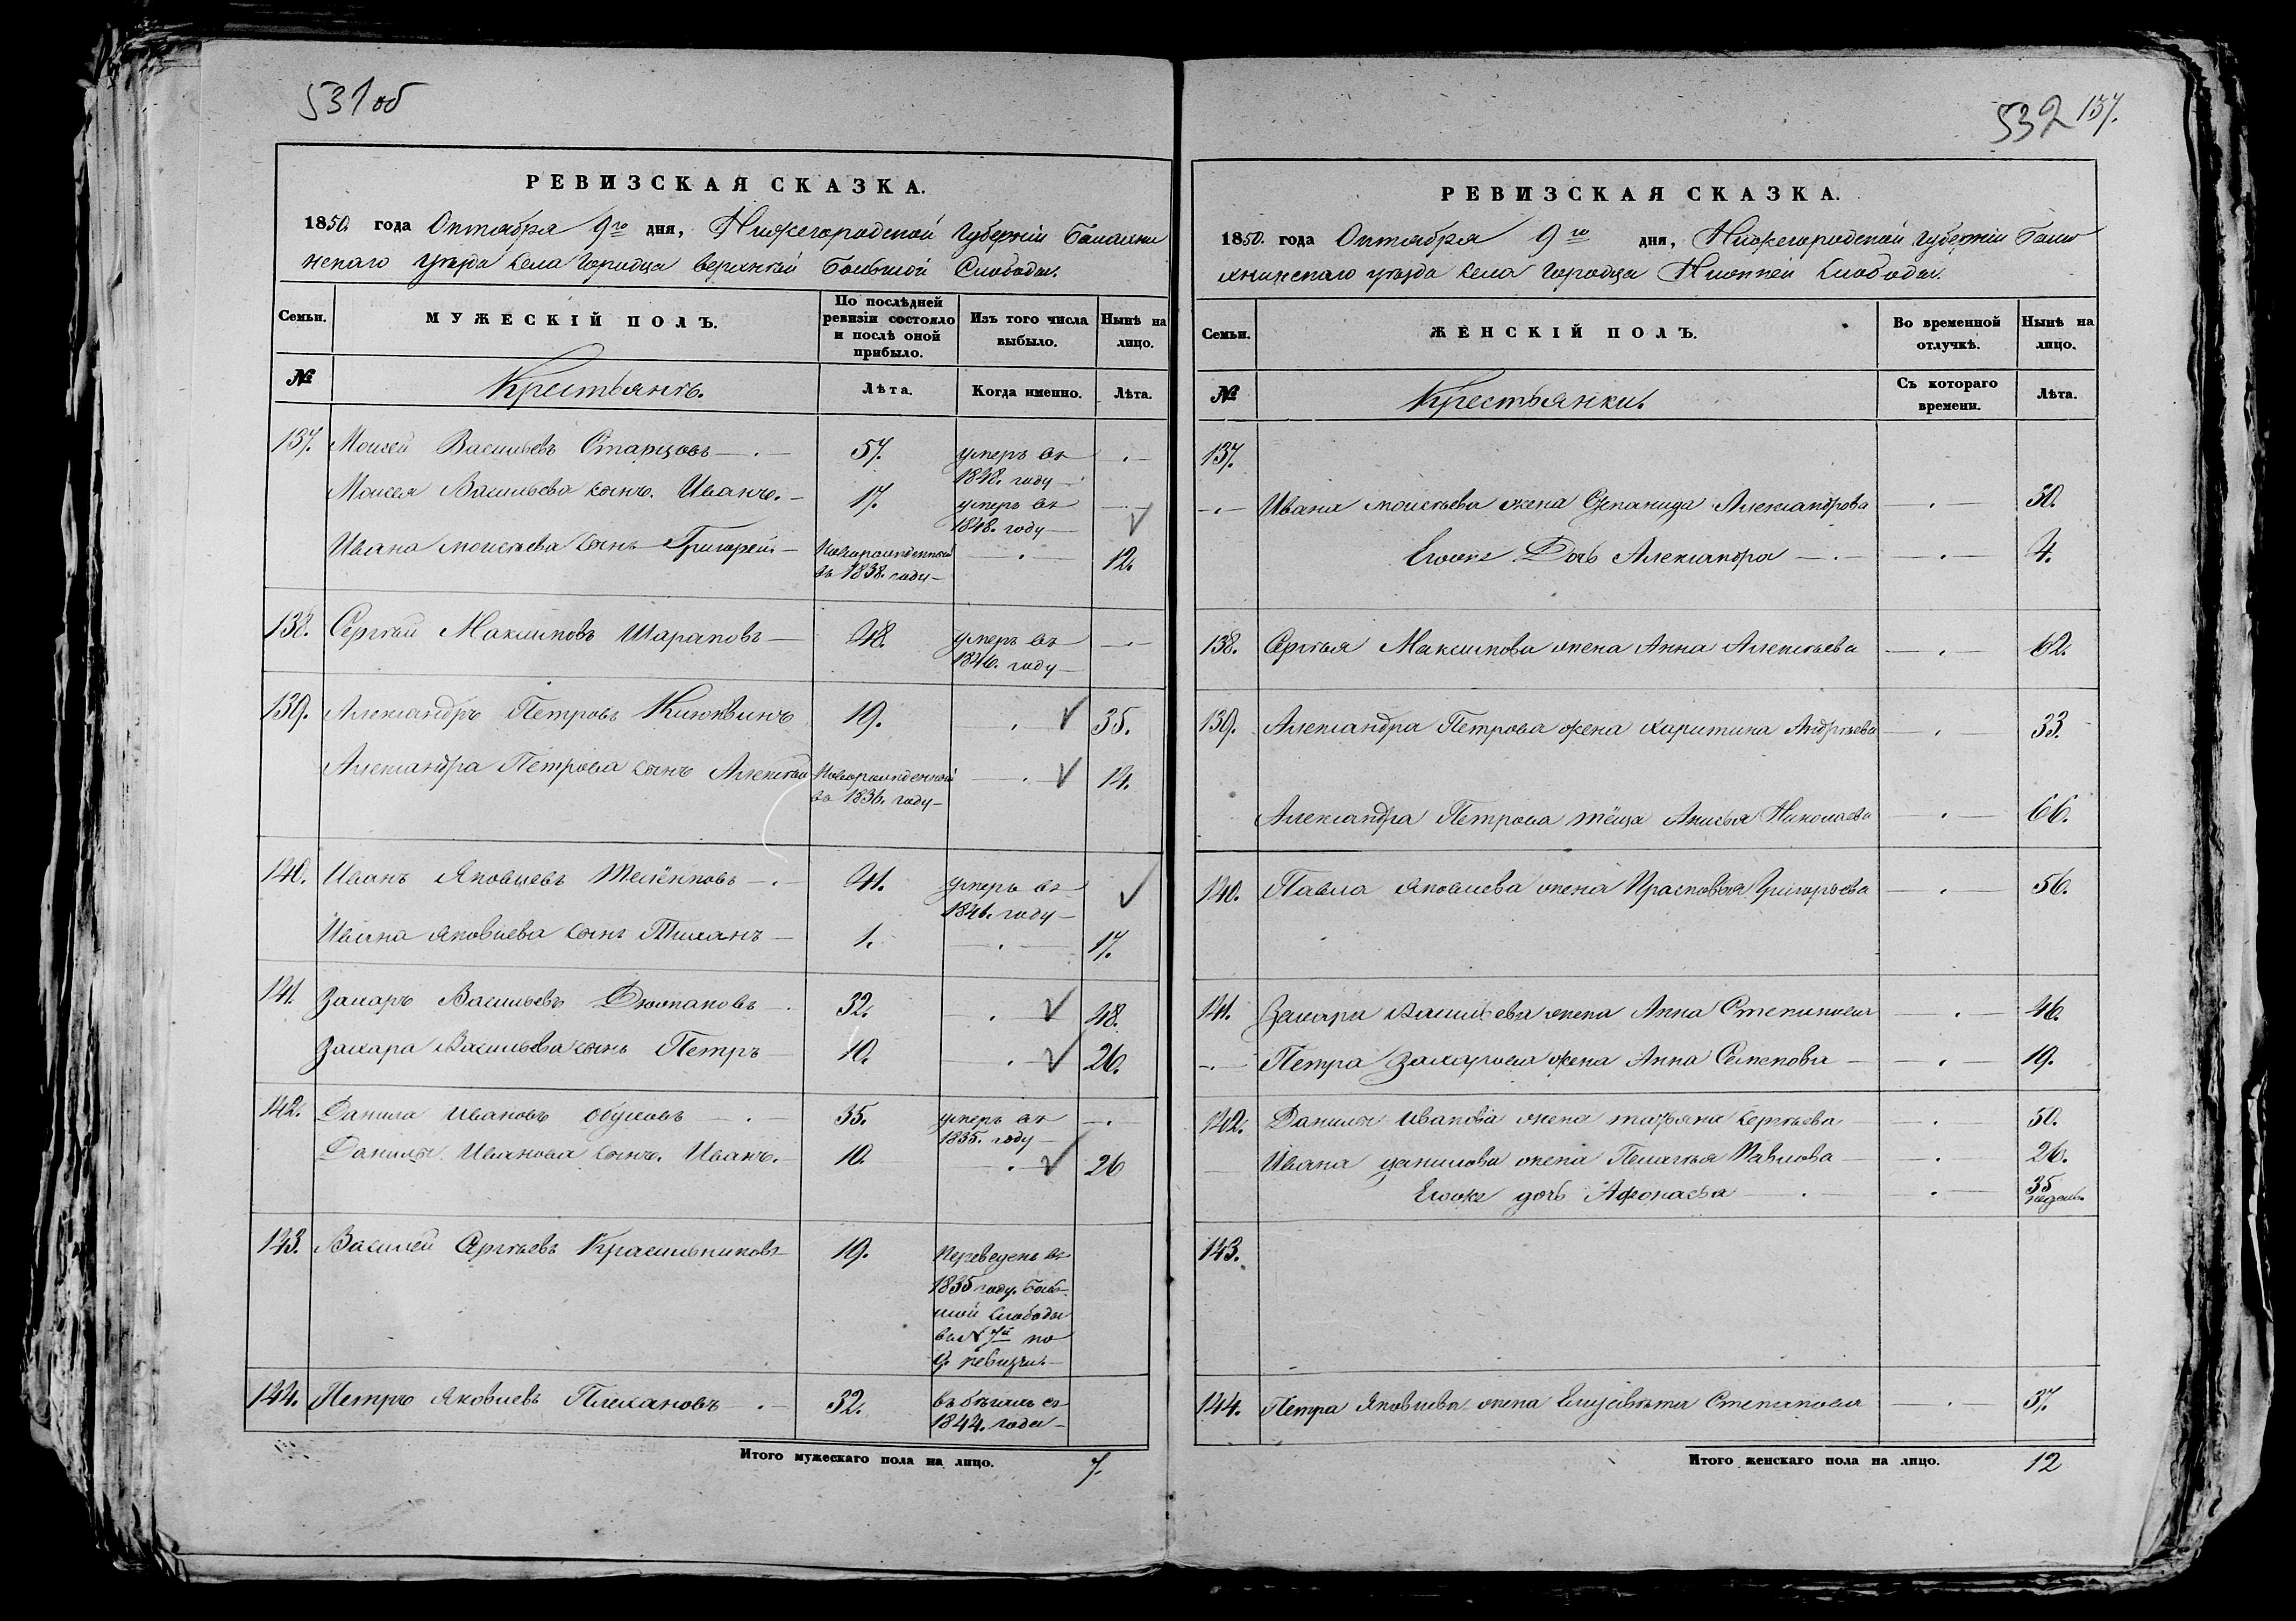 531 об
РЕВИЗСКАЯ СКАЗКА.
1850. года Октября 9го дня, Нижегородской Губернiи Балахни
нскаго уѣзда села Городца верхнѣй Большой Слободы.
Семьи.
МУЖЕСКІЙ ПОЛЪ.
По послѣдней ревизіи состояло и послѣ оной прибыло.
Изъ того числа выбыло.
Нынѣ на лицо.
№
Крестьянѣ.
Лѣта.
Когда именно.
Лѣта.
137. Моисей Васильевъ Старцовъ 57. умеръ въ
1848. году
Моисея Васильева сынъ. Иванъ. 17. умеръ въ
1848. году
Ивана моисѣева сынъ Григорей Новорожденной 12.
въ 1838. году
138. Сергѣй Максимовъ Шараповъ 48. умеръ въ
1846. году
139. Александръ Петровъ 19. 35.
Александра Петрова сынъ Алексѣй Новорожденной 14.
въ 1836. году
140. Иванъ Яковлевъ 41. умеръ въ
1846. году
Ивана яковлева сынъ Тиханъ 1. 17.
141. Захаръ Васильевъ 32. 48.
Захара Васильева сынъ Петръ 10. 26.
142. Данила Ивановъ Обуховъ 35. умеръ въ
1835. году
Данилы Иванова сынъ. Иванъ. 10. 26
143. Василей Сергѣевъ Красильниковъ 19. Переведенъ въ
1835 году. Боль-
шой Слободы
въ № 7й по
9. ревизіи.
144. Петръ Яковлевъ Плехановъ 32. въ бѣгахъ съ
1844. года
Итого мужескаго пола на лицо. 7.
532 137.
РЕВИЗСКАЯ СКАЗКА.
1850. года Октября 9го дня, Нижегородской Губернiи Бала
хнинскаго уѣзда села Городца Слободы.
Семьи.
ЖЕНСКІЙ ПОЛЪ.
Во временной отлучкѣ.
Нынѣ на лицо.
№
Крестьянки.
Съ котораго времени.
Лѣта.
137.
Ивана моисѣева жена Степанида Александрова 30.
Егоже Дочь Александра 4.
138. Сергѣя Максимова жена Анна Алексѣева 62.
139. Александра Петрова жена харитина Андрѣева 33.
Александра Петрова тёща Анисья Николаева 66.
140. Павла яковлева жена Прасковья Григорьева 56.
141. Захара Васильева жена Анна Степанова 46.
Петра Захарова жена Анна Семенова 19.
142. Данилы Иванова жена татьяна Сергѣева 50.
Ивана данилова жена Пелагѣя Павлова 26.
Егоже дочь Афонасья 35
недель.
143.
144. Петра Яковлева жена Елизавѣта Степанова 37.
Итого женскаго пола на лицо. 12